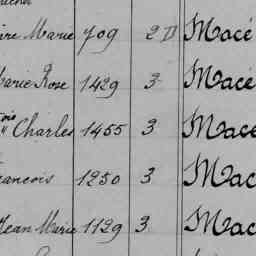 ire Marie 709 2D Macé
Marie Rose 1429 3 Macé
ois
" Charles 1455 3 Macé
rancois 1250 3 Mac
Jean Marie 1129 3 Mac